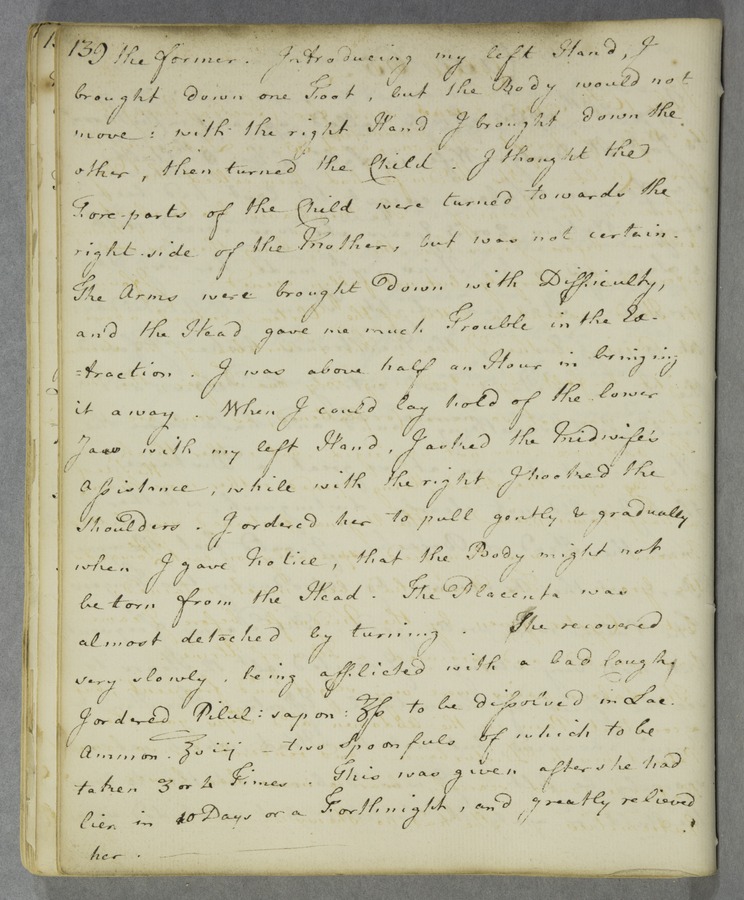 139 the former. Introducing my left Hand, I
brought down one Foot, but the Body would not
move: with the right Hand I brought down the
other, then turned the Child. I thought the
Fore-parts of the Child were turned towards the
right side of the Mother, but was not certain.
The Arms were brought down with Difficulty,
and the Head gave me much Trouble in the Ex-
=traction. I was above half an Hour in bringing
it away. When I could lay hold of the lower
Jaw with my left Hand, I asked the Midwife's
Assistance, while with the right I hooked the
Shoulders. I ordered her to pull gently & gradually
when I gave Notice, that the Body might not
be torn from the Head. The Placenta was
almost detached by turning. She recovered
very slowly, being afflicted with a bad Cough,
I ordered Pilul: sapon: ʒß to be dissolved in Lac.
Ammon. ℥viij – two Spoonfuls of which to be
taken 3 or 4 Times. This was given after she had
lien in 10 Days or a Forthnight, and greatly relieved
her.